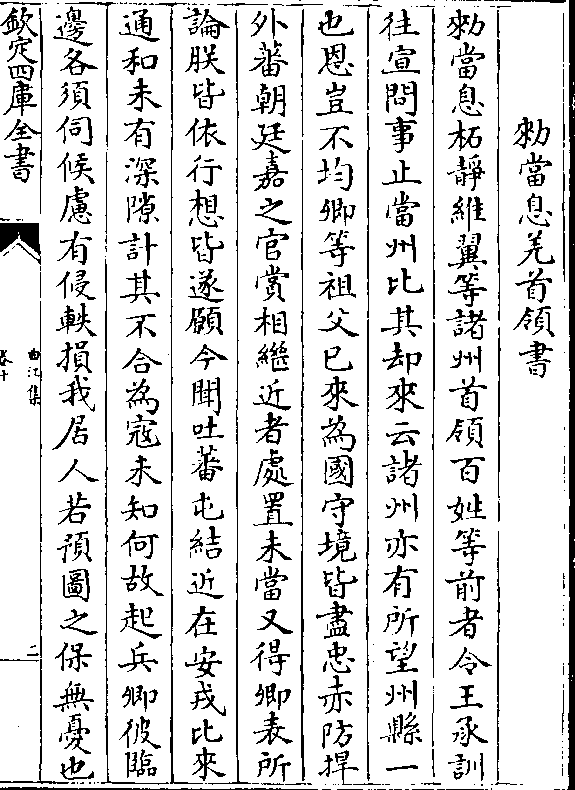 勑當息羌首領書
勑當息柘靜維翼等諸州首領百姓等前者令王承訓
往宣問事止當州比其却來云諸州亦有所望州縣一
也恩豈不均卿等祖父已來為國守境皆盡忠赤防捍
外蕃朝廷嘉之官賞相繼近者處置未當又得卿表所
論朕皆依行想皆遂願今聞吐蕃屯結近在安戎比來
通和未有深隙計其不合為寇未知何故起兵卿彼臨
邊各須伺候慮有侵軼損我居人若預圖之保無憂也
欽定四庫全書
曲江集
卷十
二